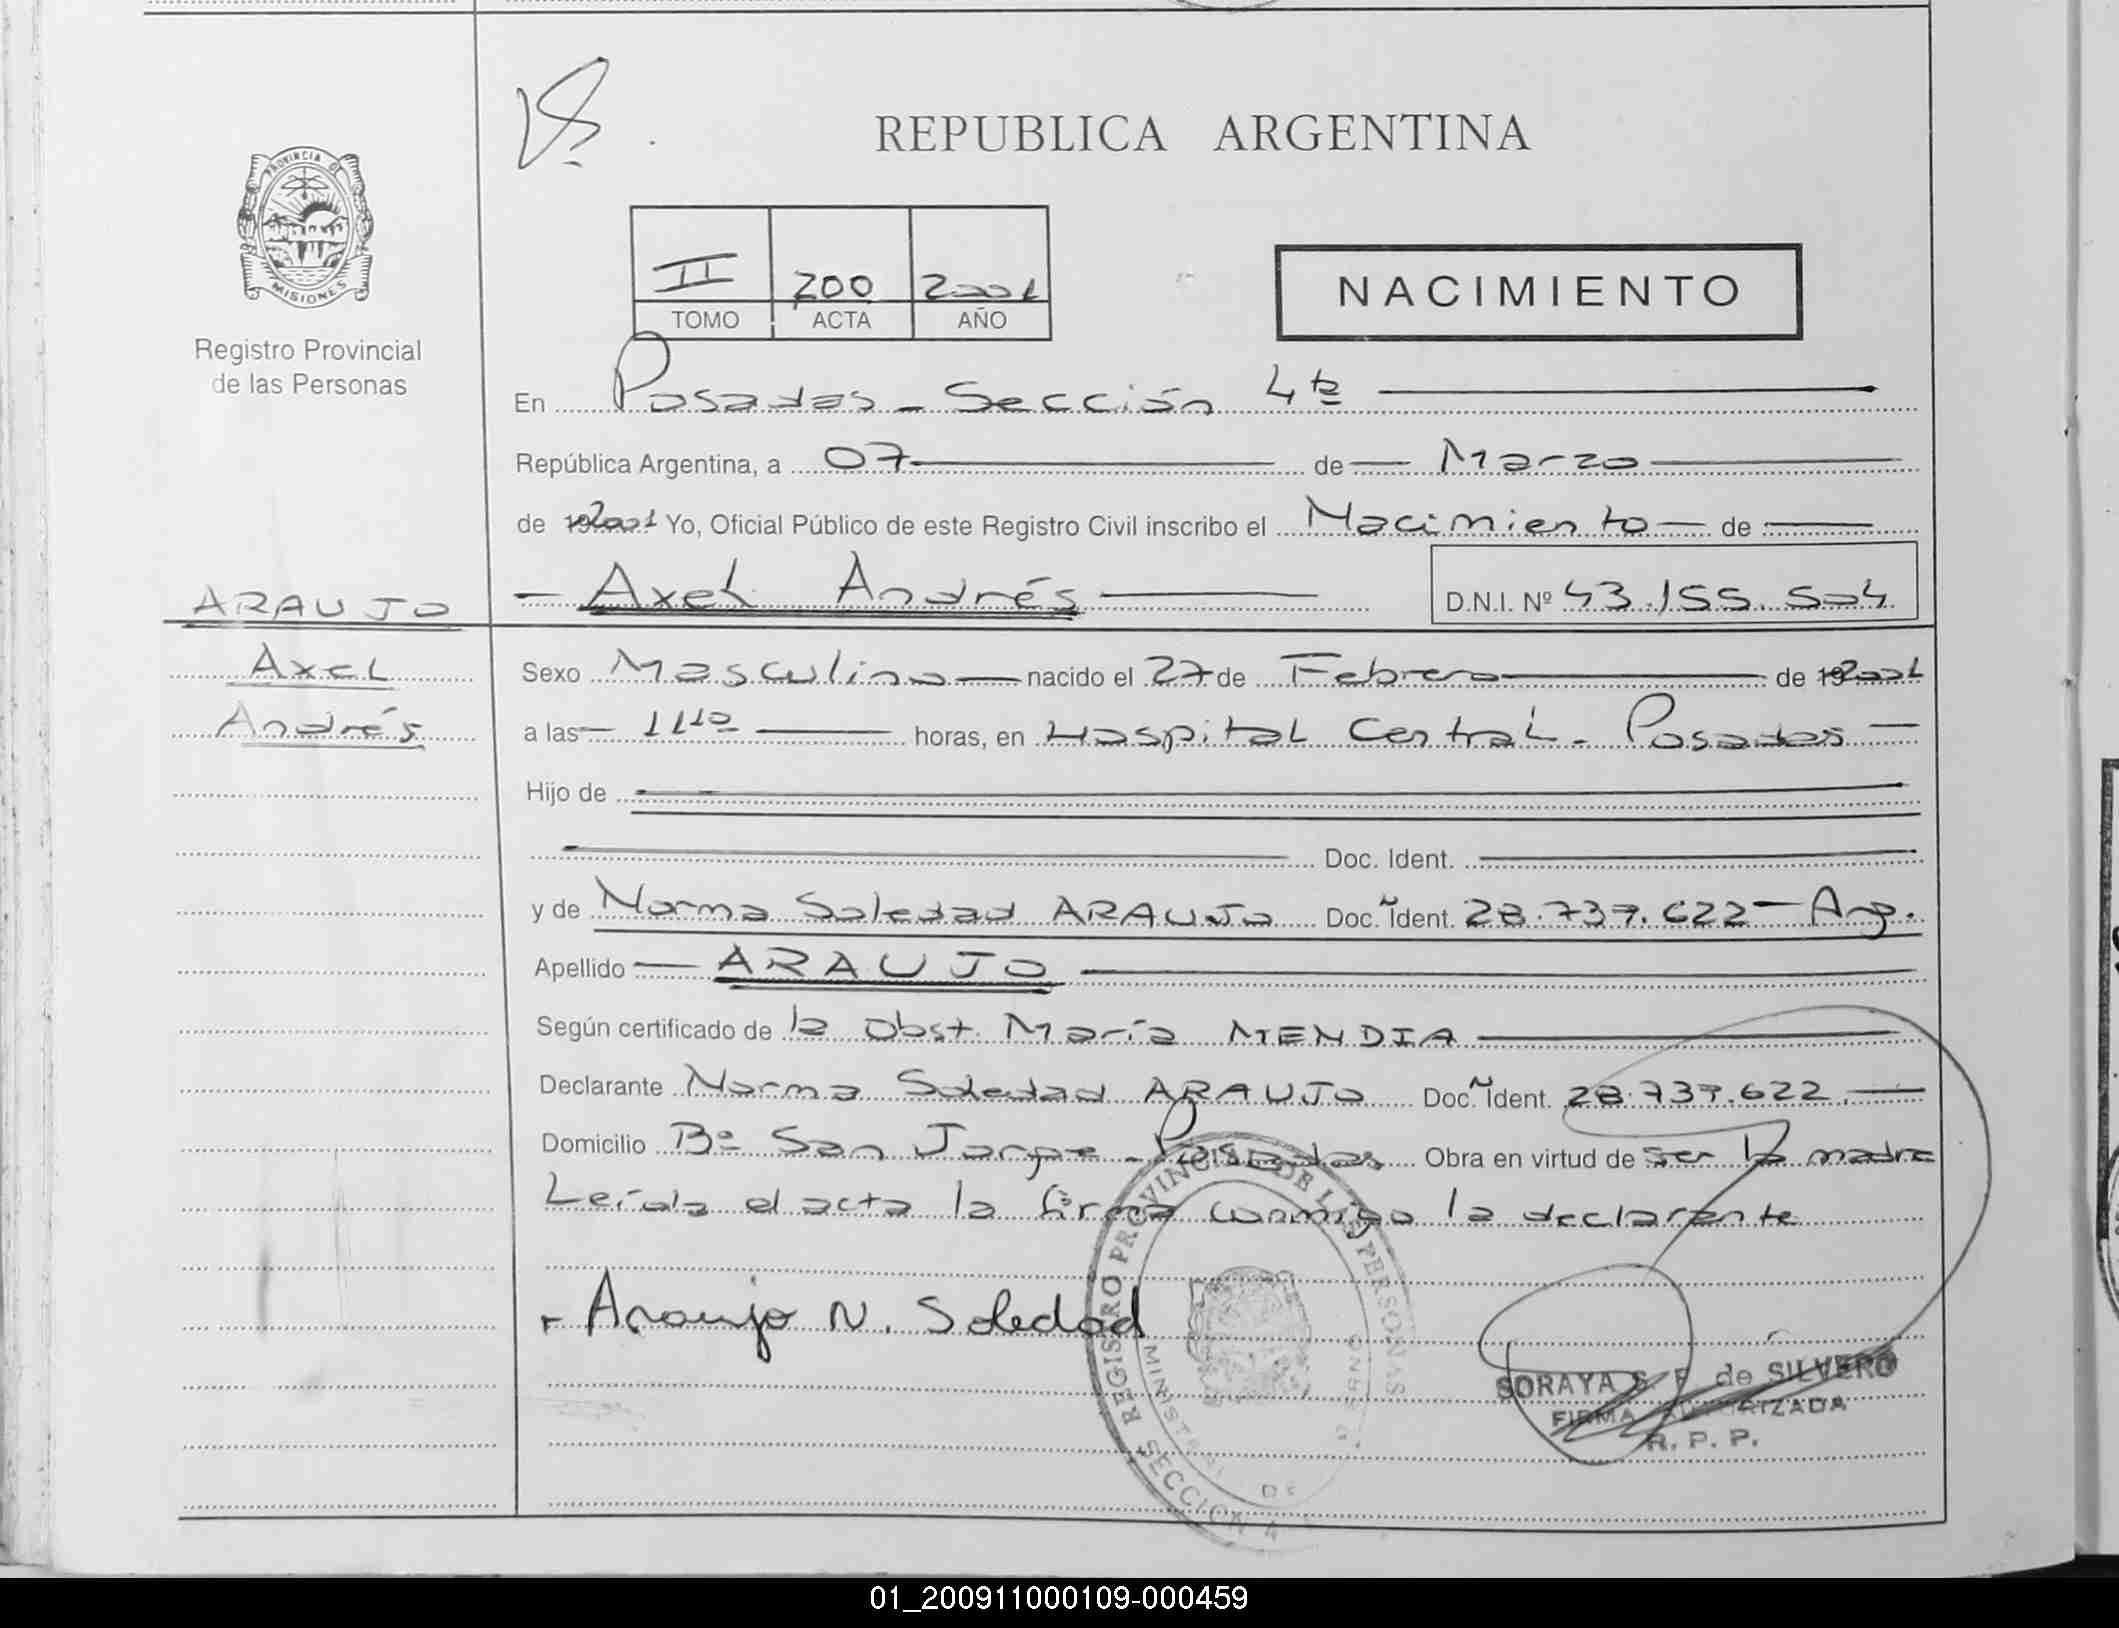 REPUBLICA ARGENTINA
PROVINCIA DE
MISIONES
Registro Provincial
de las Personas
II 200 2001
TOMO ACTA AÑO
NACIMIENTO
En Posadas - Sección 4ta
República Argentina, a 07 de Marzo
de 2001 Yo, Oficial Público de este Registro Civil inscribo el Nacimiento de
ARAUJO
Axel
Andrés
Axel Andrés D.N.I. Nº 43.155.504
Sexo Masculino nacido el 27 de Febrero de 2001
a las 11 10 horas, en Hospital Central - Posadas
Hijo de
Doc. Ident.
y de Norma Soledad ARAUJO Doc. Ident. 28.737.622 - Arg.
Apellido ARAUJO
Según certificado de la Obst. María MENDIA
Declarante Norma Soledad ARAUJO Doc. Ident. 28.737.622
Domicilio Bº San Jorge - Posadas Obra en virtud de ser la madre
Leída el acta la firma conmigo la declarante
Araujo N. Soledad
REGISTRO PROVINCIAL DE LAS PERSONAS
SECCION 4
SORAYA S. F. de SILVERO
FIRMA AUTORIZADA
R. P. P.
01_200911000109-000459